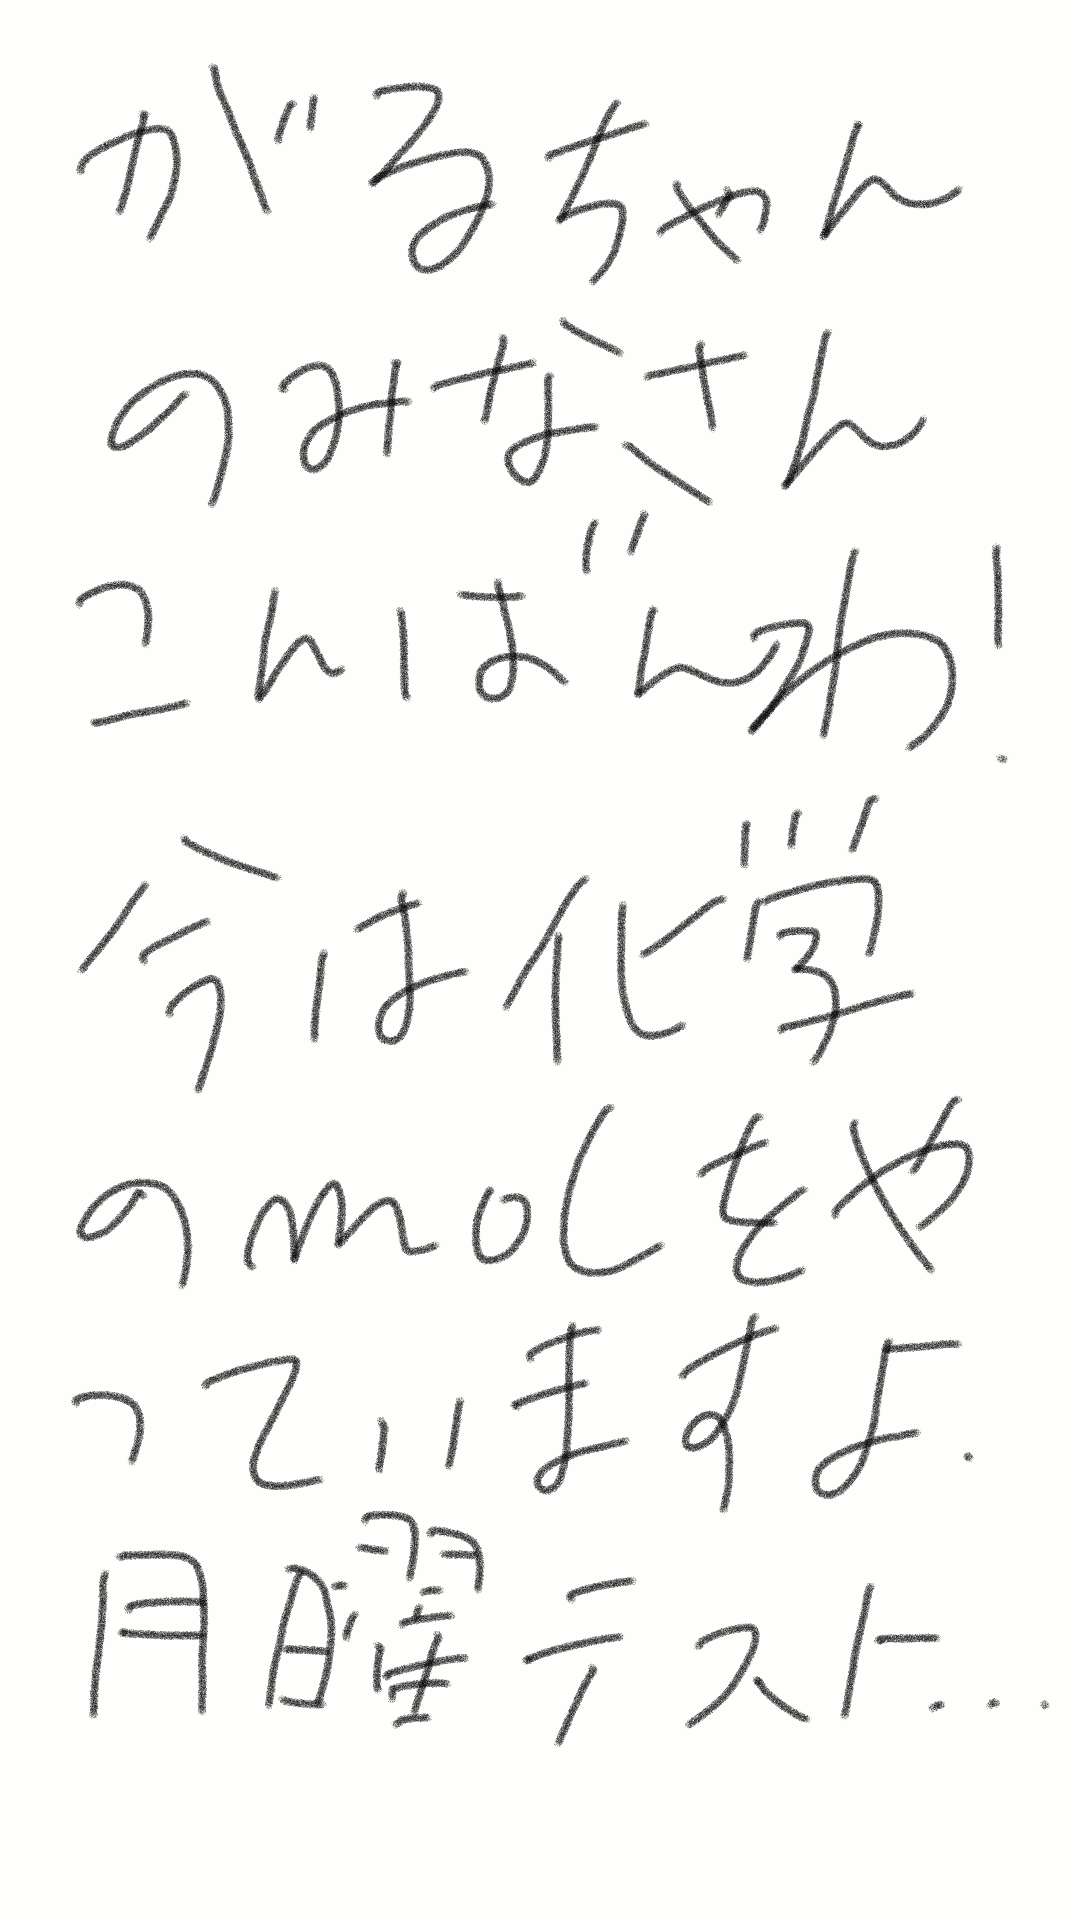 がるちゃん
のみなさん
こんばんわ!
今は化学
のmolをや
っていますよ.
月曜テスト...